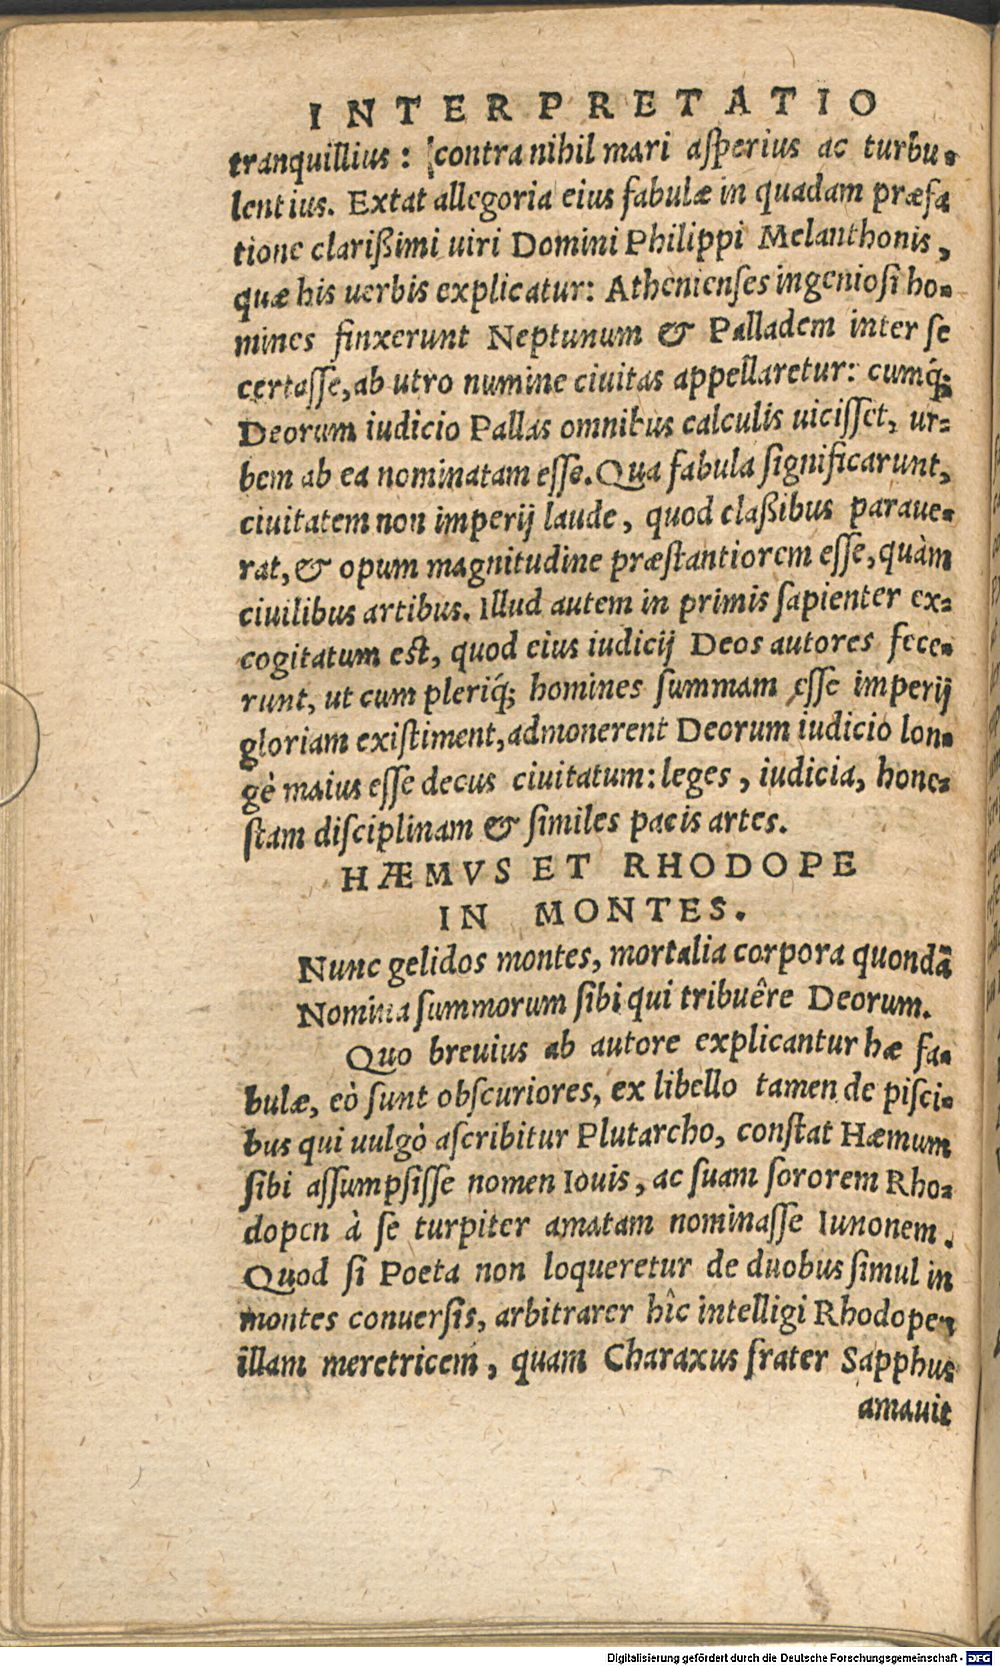 INTERPRETATIO
tranquillius: contra nihil mari aſperius ac turbu-
lentius. Extat allegoria eius fabulæ in quadam præfa
tione clarißimi uiri Domini Philippi Melanthonis,
quæ his uerbis explicatur: Athenienſes ingenioſi ho-
mines finxerunt Neptunum & Palladem inter ſe
certaſſe, ab utro numine ciuitas appellaretur: cumq́;
Deorum iudicio Pallas omnibus calculis uiciſſet, ur-
bem ab ea nominatam eſſe. Qua fabula ſignificarunt,
ciuitatem non imperij laude, quod claßibus paraue-
rat, & opum magnitudine præſtantiorem eſſe, quàm
ciuilibus artibus. Illud autem in primis ſapienter ex-
cogitatum est, quod eius iudicij Deos autores fece-
runt, ut cum pleriq́; homines ſummam eſſe imperij
gloriam exiſtiment, admonerent Deorum iudicio lon-
gè maius eſſe decus ciuitatum: leges, iudicia, hone-
ſtam diſciplinam & ſimiles pacis artes.
HÆMVS ET RHODOPE
IN MONTES.
Nunc gelidos montes, mortalia corpora quondã
Nomina ſummorum ſibi qui tribuêre Deorum.
Quo breuius ab autore explicantur hæ fa-
bulæ, eò ſunt obſcuriores, ex libello tamen de piſci-
bus qui uulgò aſcribitur Plutarcho, conſtat Hæmum
ſibi aſſumpſiſſe nomen Iouis, ac ſuam ſororem Rho-
dopen à ſe turpiter amatam nominaſſe Iunonem.
Quod ſi Poeta non loqueretur de duobus ſimul in
montes conuerſis, arbitrarer hîc intelligi Rhodopen
illam meretricem, quam Charaxus frater Sapphus
amauit
Digitalisierung gefördert durch die Deutsche Forschungsgemeinschaft - DFG